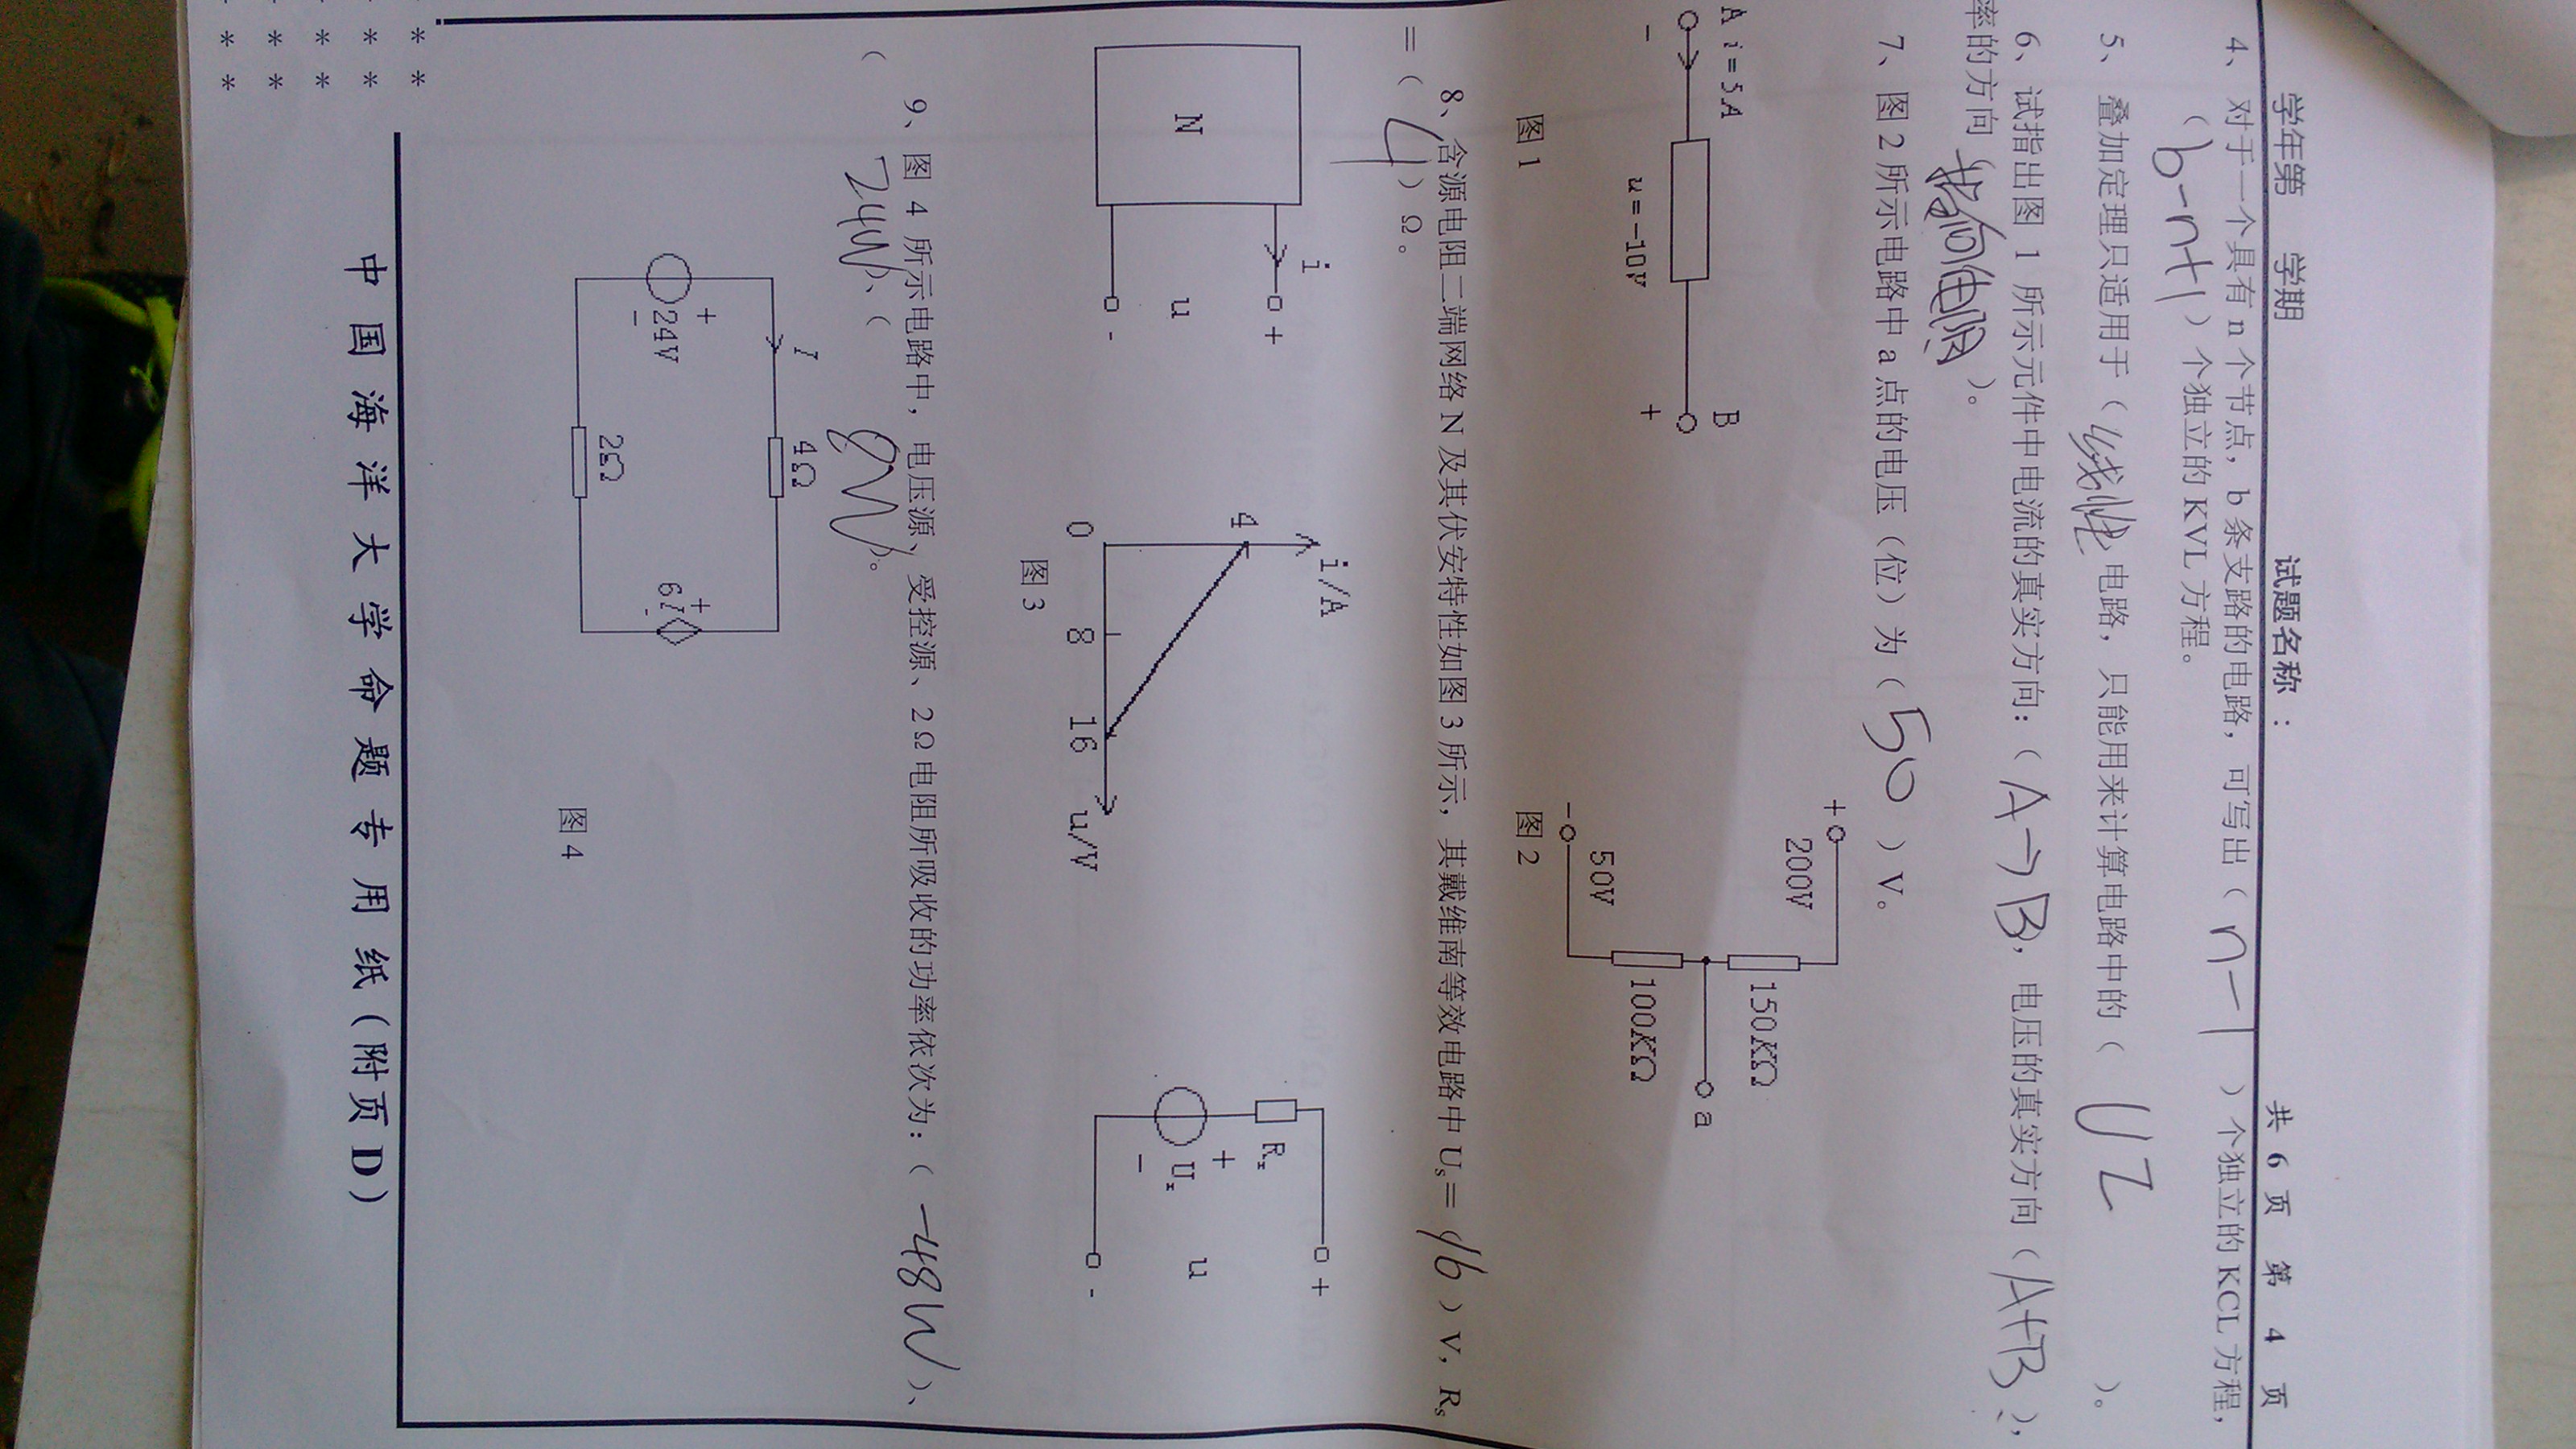 学年第 学期 试题名称 : 共 6 页 第 4 页
4、对于一个具有 n 个节点，b 条支路的电路，可写出（ n-1 ）个独立的 KCL 方程，
（ b-n+1 ）个独立的 KVL 方程。
5、叠加定理只适用于（ 线性 电路，只能用来计算电路中的（ U I ）。
6、试指出图 1 所示元件中电流的真实方向：（ A→B ，电压的真实方向（ A+B ），
率的方向（ 指向电阻 ）。
7、图 2 所示电路中 a 点的电压（位）为（ 50 ）V。
+ 200V
150KΩ
a
100KΩ
50V
-
A i=5A B
- u=-10V +
图 1 图 2
8、含源电阻二端网络 N 及其伏安特性如图 3 所示，其戴维南等效电路中 Us＝（ 16 ）V，Rs
＝（ 4 ）Ω。
N i + u -
i/A
4
0 8 16 u/V
Rs + Us - + u -
图 3
9、图 4 所示电路中，电压源、受控源、2Ω电阻所吸收的功率依次为：（ -48W ）、
（ 24W ）、（ 8W ）。
I 4Ω
+ 24V - + 6I -
2Ω
图 4
* *
* *
* *
* *
* *
中国海洋大学命题专用纸(附页D)